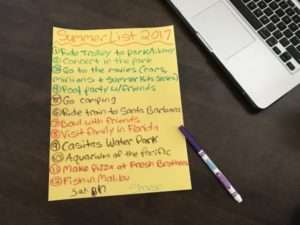 Summer List 2017
① Ride Trolley to park/library
② Concert in the park
③ Go to the movies (cars,
minions & summer kids series)
④ Pool party w/friends
⑤ Go camping
⑥ Ride train to Santa Barbara
⑦ Bowl with friends
⑧ Visit family in Florida
⑨ Casitas Water Park
⑩ Aquarium of the Pacific
⑪ Make pizza at Fresh Brothers
⑫ Fish in Malibu